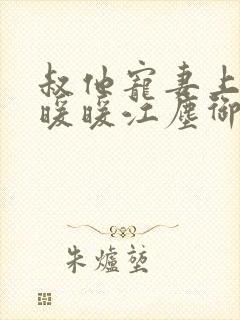 叔他寵妻上
暖暖江塵御
朱爐莛